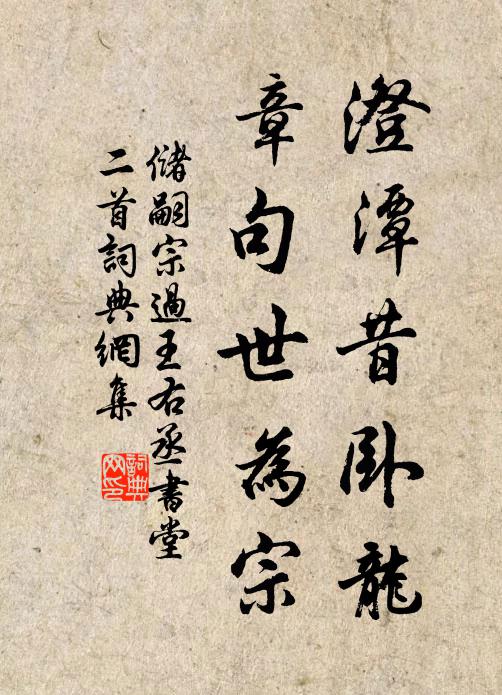 澄潭昔卧龍
章句世為宗
儲嗣宗過王右丞書堂
二首詞典網集
詞典
网印